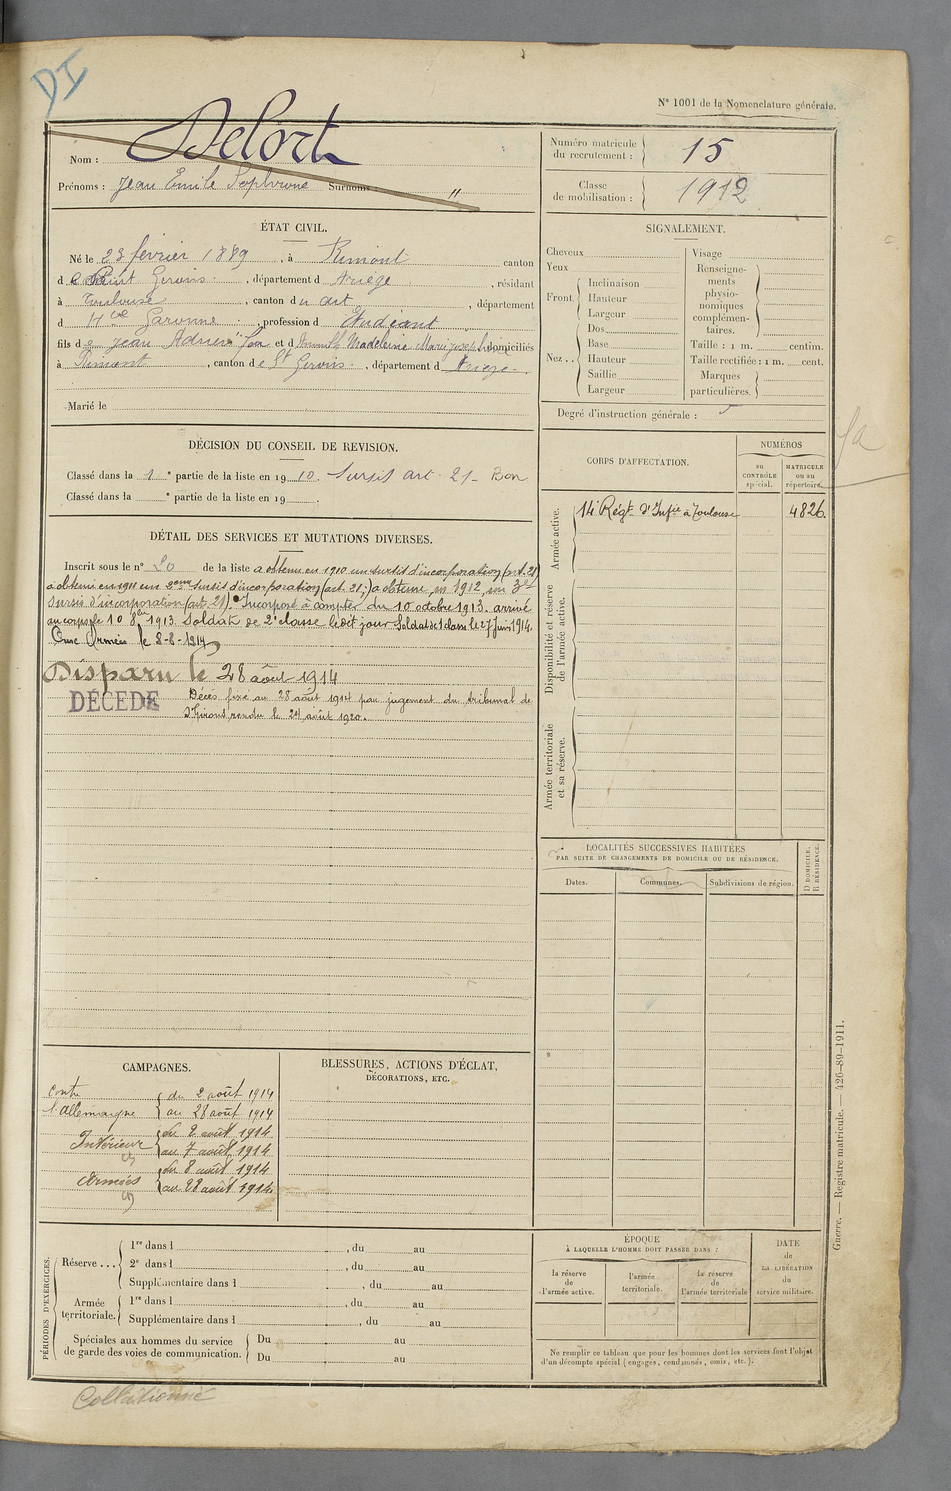 DI
N° 1001 de la Nomenclature générale.
Nom : Delort
Prénoms : Jean Emile Surnoms : "
Numéro matricule du recrutement : 15
Classe de mobilisation : 1912
ÉTAT CIVIL.
Né le 23 février 1889, à Rimont canton
de Saint Girons, département d Ariège, résidant
à Toulouse, canton d u dit, département
d Hte Garonne, profession d Etudiant
fils de Jean Adrien et d Madeleine Marie domiciliés
à Rimont, canton de St Girons, département d Ariège.
Marié le
SIGNALEMENT.
Cheveux
Yeux
Front. Inclinaison
Hauteur
Largeur
Nez .. Dos
Base
Hauteur
Saillie
Largeur
Visage
Renseignements physionomiques complémentaires.
Taille : 1 m. centim.
Taille rectifiée : 1 m. cent.
Marques particulières.
Degré d'instruction générale : 5
DÉCISION DU CONSEIL DE REVISION.
Classé dans la 1 e partie de la liste en 1910. Sursis art. 21 - Bon
Classé dans la e partie de la liste en 19 .
CORPS D'AFFECTATION.
NUMÉROS
au CONTRÔLE spécial.
MATRICULE ou au répertoire.
Armée active.
14 Régt d'Infie à Toulouse 4826.
Disponibilité et réserve de l'armée active.
Armée territoriale et sa réserve.
DÉTAIL DES SERVICES ET MUTATIONS DIVERSES.
Inscrit sous le n° 20 de la liste a obtenu en 1910 un sursis d'incorporation (art. 21)
a obtenu en 1911 un 2eme sursis d'incorporation (art. 21,) a obtenu, en 1912, un 3e
sursis d'incorporation (art. 21). Incorporé à compter du 10 octobre 1913. arrivé
au corps le 10 8bre 1913. Soldat de 2e classe le dit jour Soldat de 1 classe le 27 juin 1914.
Aux Armées le 8-8-1914
Disparu le 28 août 1914
DÉCÉDÉ
Décès fixé au 28 août 1914 par jugement du tribunal de
St Girons rendu le 24 août 1920.
LOCALITÉS SUCCESSIVES HABITÉES
PAR SUITE DE CHANGEMENTS DE DOMICILE OU DE RÉSIDENCE.
Dates. Communes. Subdivisions de région. D DOMICILE. R RÉSIDENCE.
CAMPAGNES.
contre l'allemagne du 2 août 1914
au 28 août 1914
Intérieur du 2 août 1914
au 7 août 1914
Armées du 8 août 1914
au 28 août 1914.
BLESSURES, ACTIONS D'ÉCLAT,
DÉCORATIONS, ETC.
PÉRIODES D'EXERCICES.
Réserve ... 1re dans l , du au
2e dans l , du au
Supplémentaire dans l , du au
Armée territoriale. 1re dans l , du au
Supplémentaire dans l , du au
Spéciales aux hommes du service de garde des voies de communication. Du au
Du au
ÉPOQUE
À LAQUELLE L'HOMME DOIT PASSER DANS :
la réserve de l'armée active.
l'armée territoriale.
la réserve de l'armée territoriale
DATE de LA LIBÉRATION du service militaire.
Ne remplir ce tableau que pour les hommes dont les services font l'objet
d'un décompte spécial (engagés, condamnés, omis, etc.).
Guerre. — Registre matricule. — 426-89-1911.
Collationné